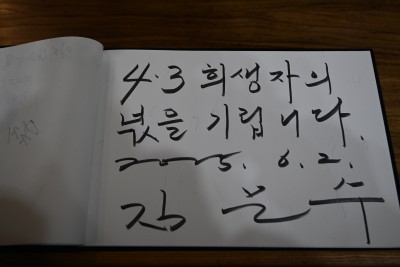 4·3 희생자의
넋을 기립니다.
2025. 6. 2.